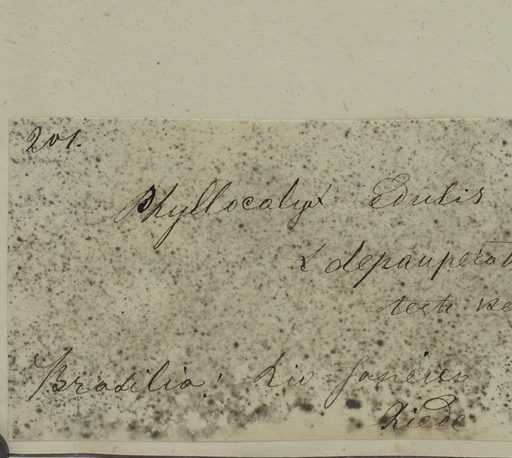 201.
Phyllocalyx Edulis
depauperat
Brasilia: Rio Janeiro
Riede